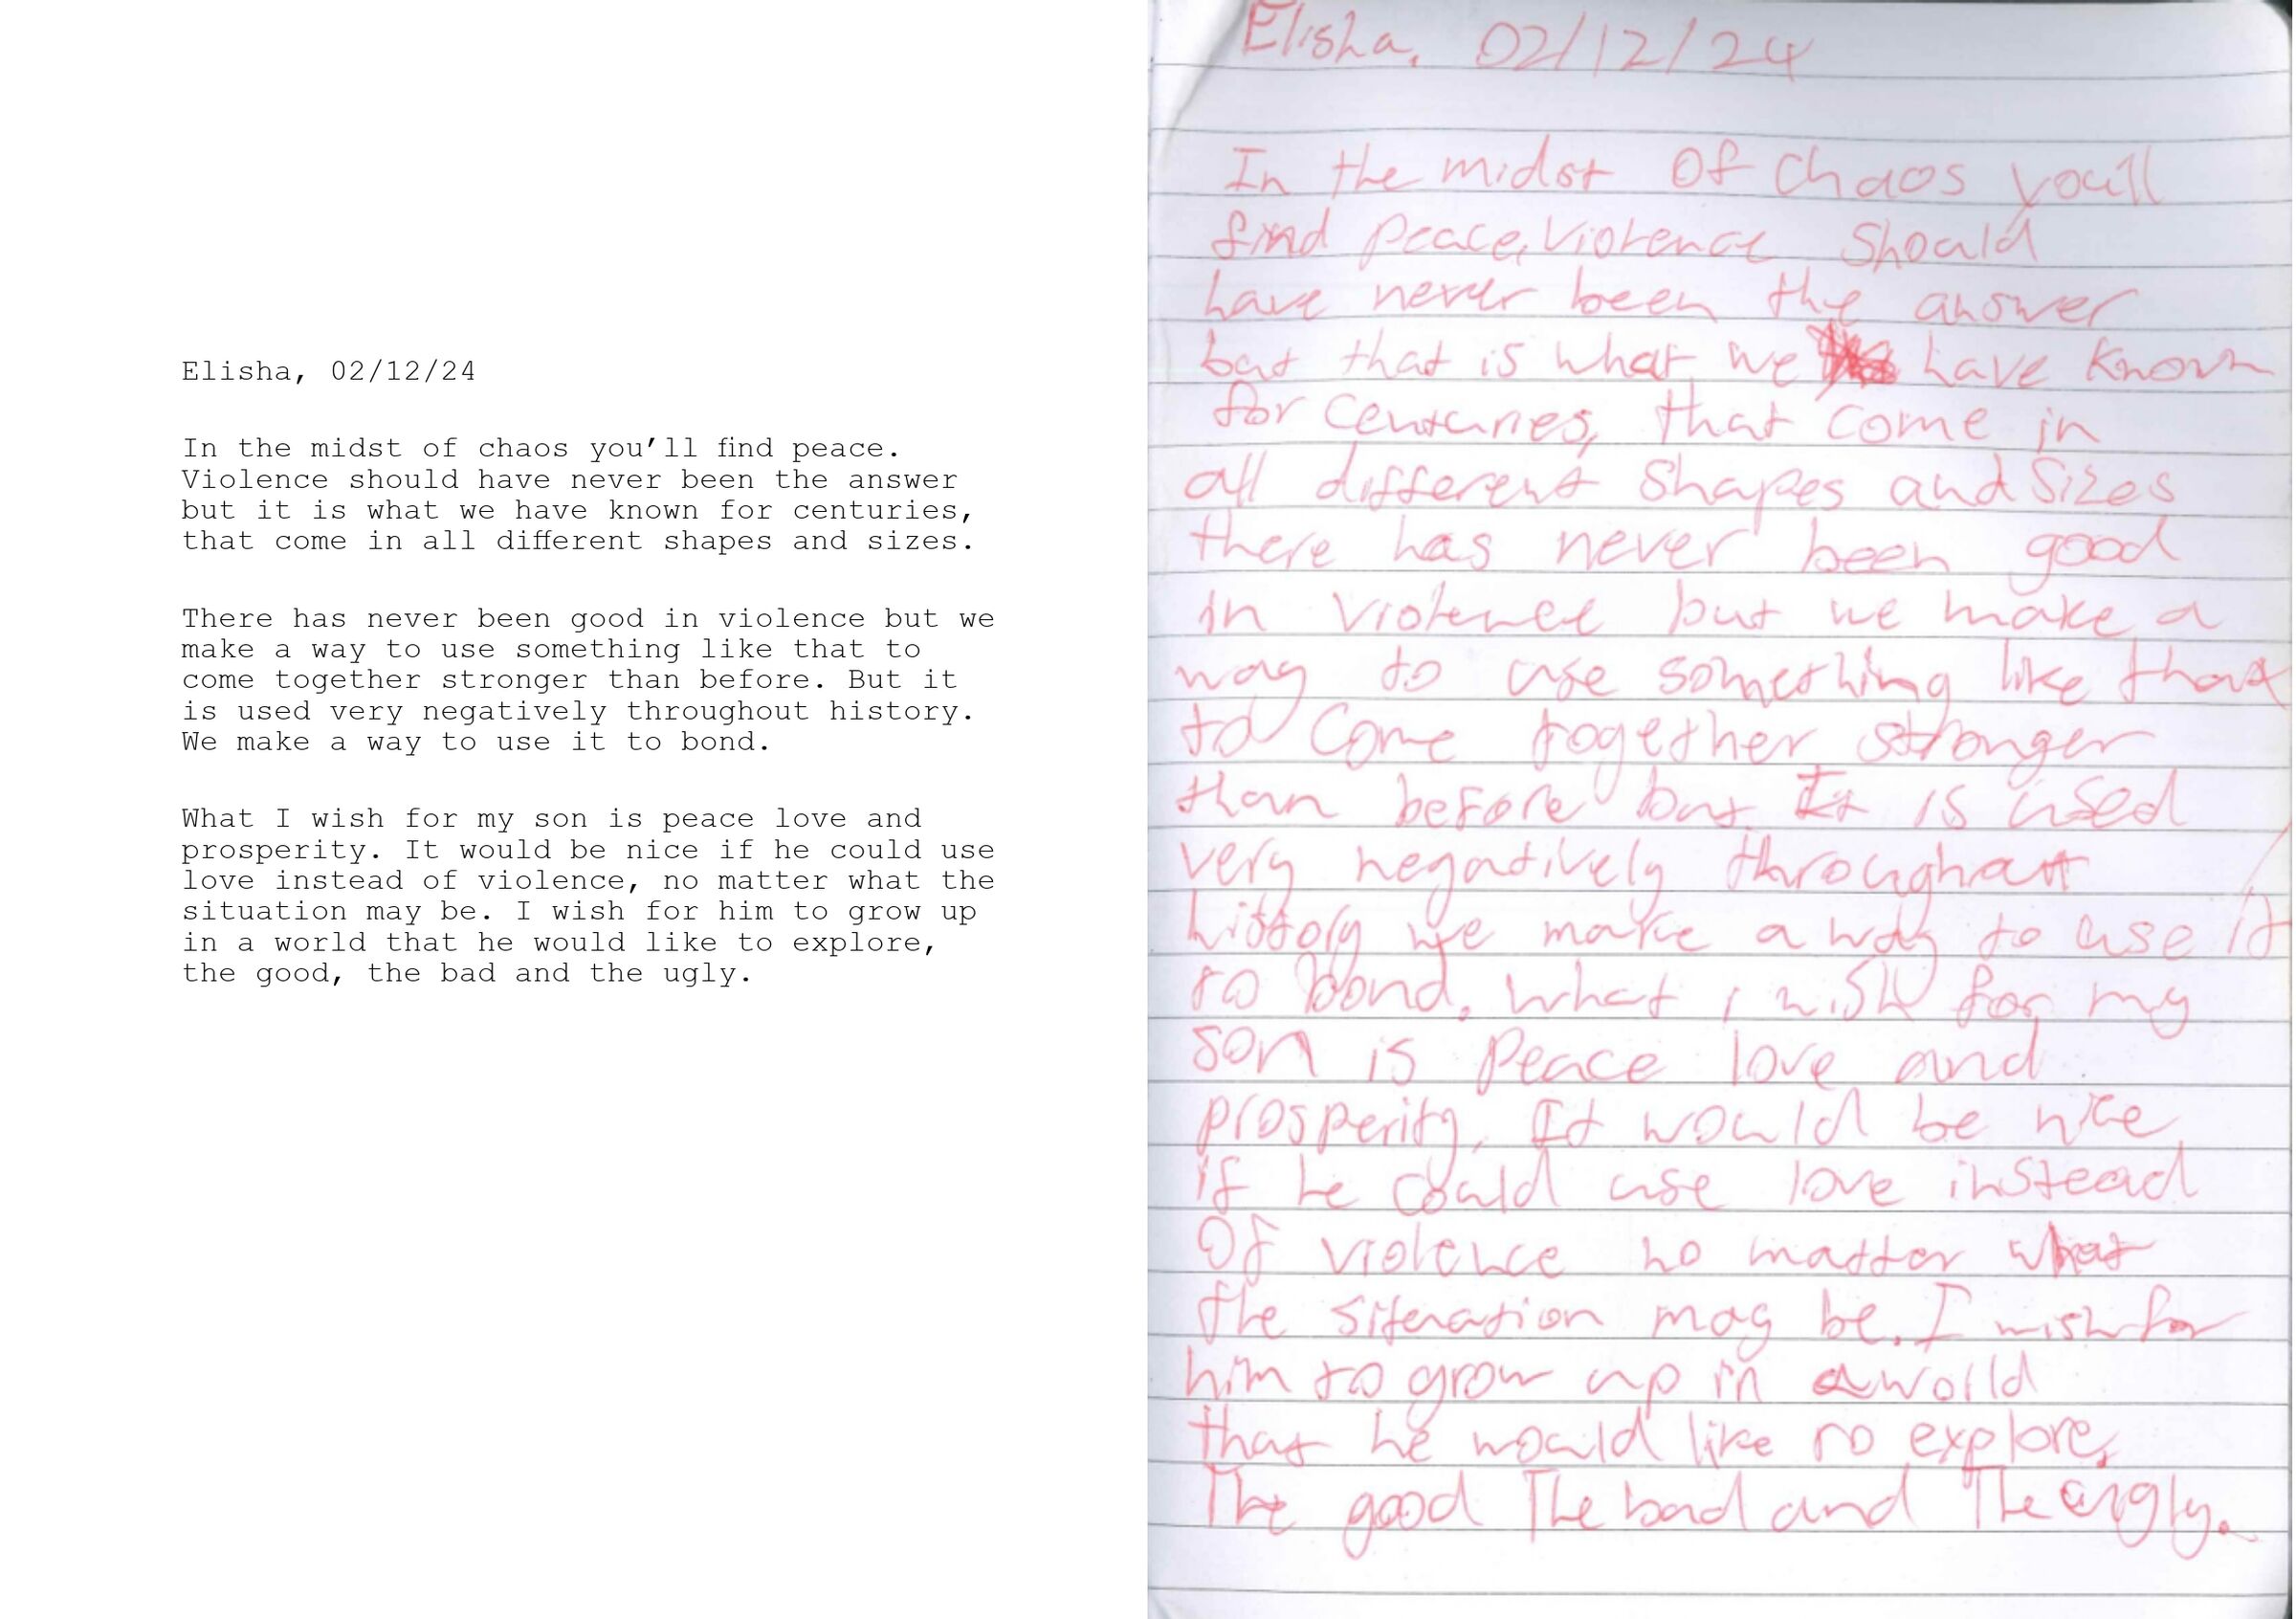 Elisha, 02/12/24
In the midst of chaos you'll find peace.
Violence should have never been the answer
but it is what we have known for centuries,
that come in all different shapes and sizes.
There has never been good in violence but we
make a way to use something like that to
come together stronger than before. But it
is used very negatively throughout history.
We make a way to use it to bond.
What I wish for my son is peace love and
prosperity. It would be nice if he could use
love instead of violence, no matter what the
situation may be. I wish for him to grow up
in a world that he would like to explore,
the good, the bad and the ugly.
Elisha, 02/12/24
In the midst Of chaos you'll
find peace, Violence Should
have never been the answer
but that is what we have known
for centuries, that come in
all different shapes and sizes
there has never been good
in violence but we make a
way to use something like that
to come together stronger
than before but It is used
very negatively throughout
history we make a way to use it
to bond. what i wish for my
son is peace love and
prosperity. It would be nice
if he could use love instead
Of violence no matter what
the situation may be. I wish for
him to grow up in a world
that he would like to explore,
The good The bad and The ugly.